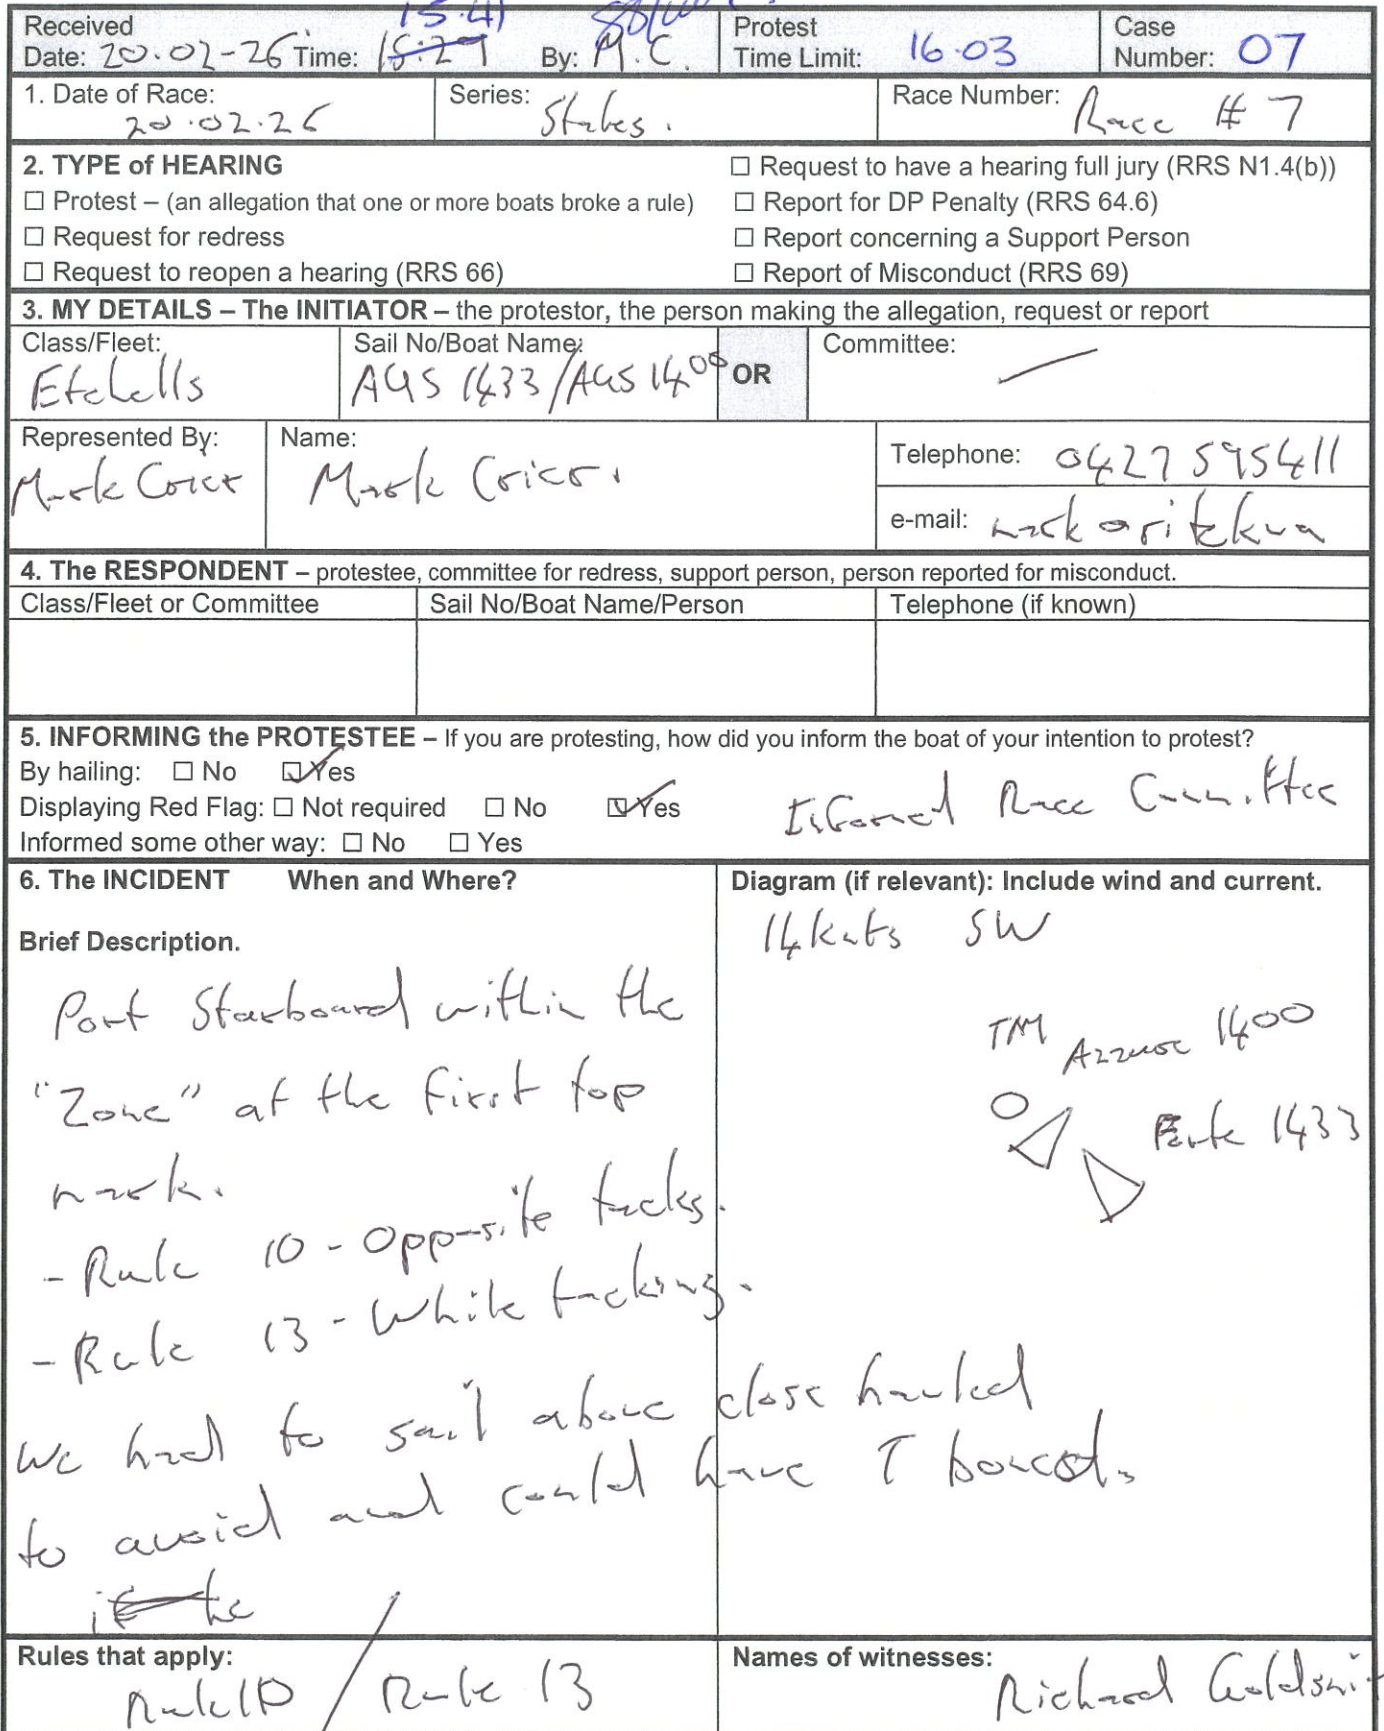 Received 15.41
Date: 20.02-26 Time: 15:29 By: M.C.
Protest
Time Limit: 16.03
Case
Number: 07
1. Date of Race: 20.02.26
Series: States.
Race Number: Race # 7
2. TYPE of HEARING
☐ Protest – (an allegation that one or more boats broke a rule)
☐ Request for redress
☐ Request to reopen a hearing (RRS 66)
☐ Request to have a hearing full jury (RRS N1.4(b))
☐ Report for DP Penalty (RRS 64.6)
☐ Report concerning a Support Person
☐ Report of Misconduct (RRS 69)
3. MY DETAILS – The INITIATOR – the protestor, the person making the allegation, request or report
Class/Fleet: Etchells
Sail No/Boat Name: AUS 1433/AUS 1400
OR
Committee:
Represented By: Mark
Name: Mark
Telephone: 0427595411
e-mail:
4. The RESPONDENT – protestee, committee for redress, support person, person reported for misconduct.
Class/Fleet or Committee
Sail No/Boat Name/Person
Telephone (if known)
5. INFORMING the PROTESTEE – If you are protesting, how did you inform the boat of your intention to protest?
By hailing: ☐ No ☑ Yes
Displaying Red Flag: ☐ Not required ☐ No ☑ Yes
Informed Race Committee
Informed some other way: ☐ No ☐ Yes
6. The INCIDENT When and Where?
Brief Description.
Port Starboard within the
"Zone" at the first top
mark.
- Rule 10 - Opposite tacks.
- Rule 13 - While tacking.
We had to sail above close hauled
to avoid and could have T boned.
if he
Diagram (if relevant): Include wind and current.
14 knts SW
TM
1400
1433
Rules that apply:
Rule 10 / Rule 13
Names of witnesses:
Richard